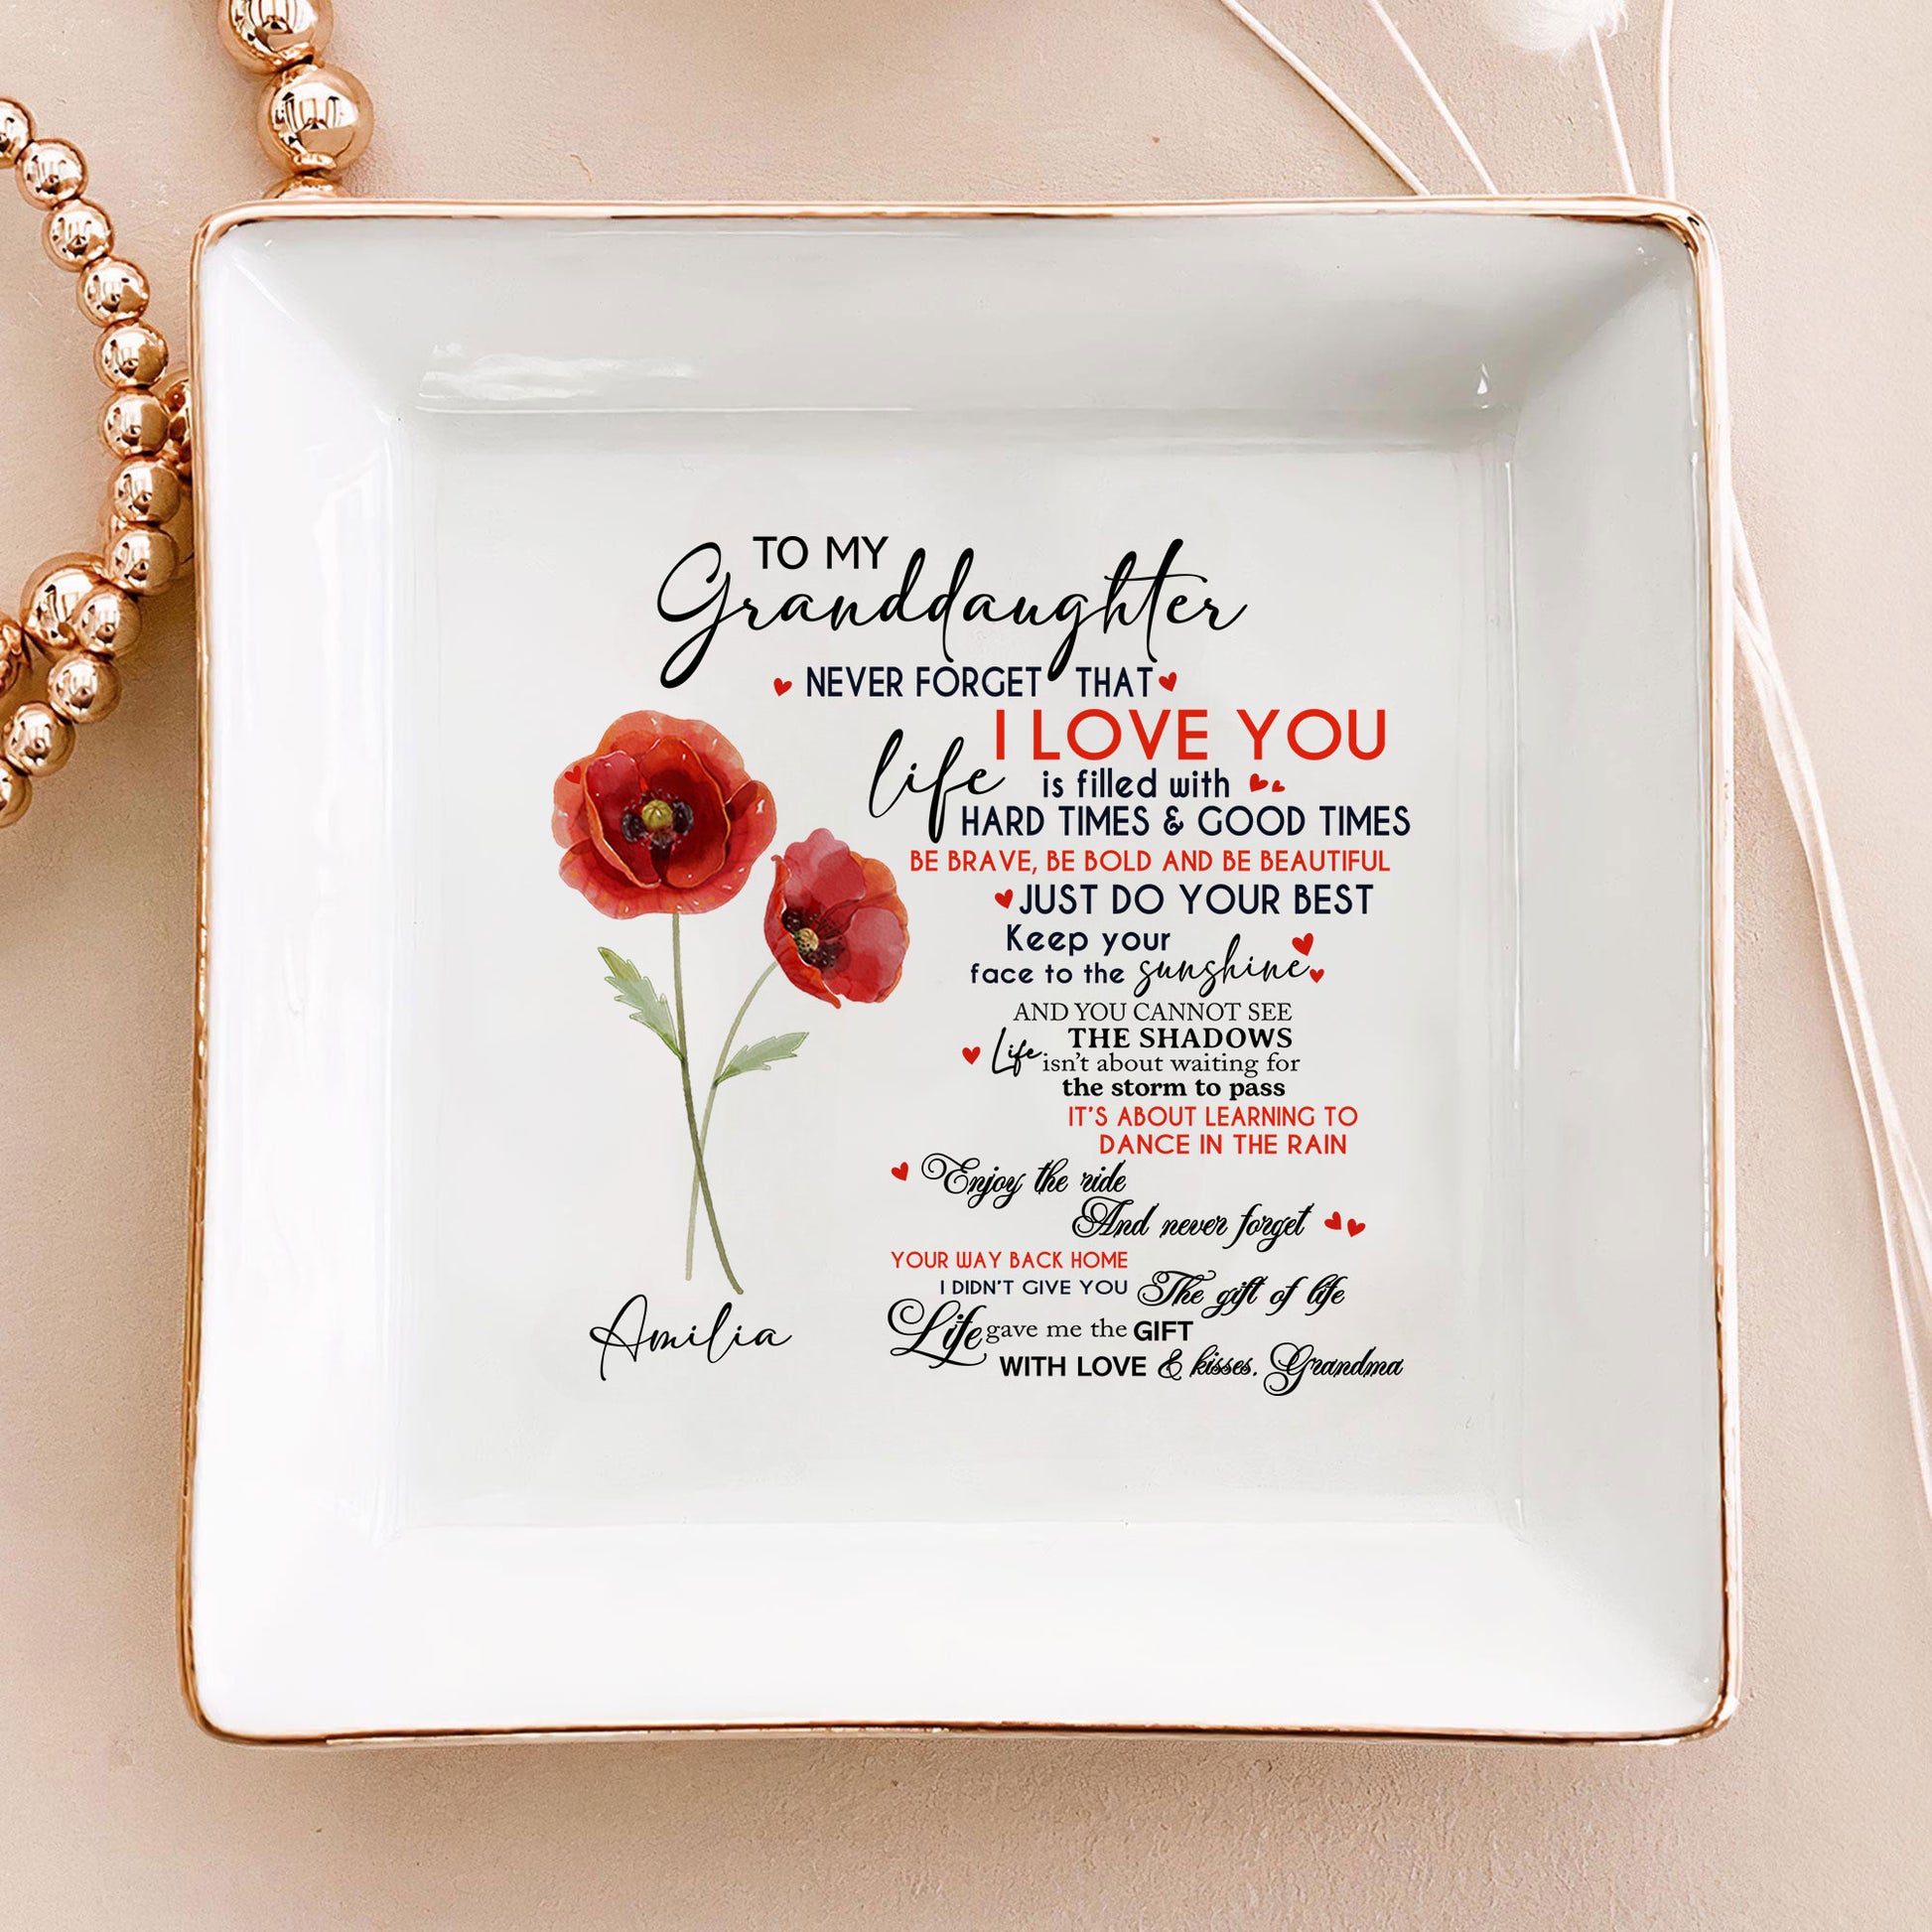 TO MY
Granddaughter
NEVER FORGET THAT
I LOVE YOU
life is filled with
HARD TIMES & GOOD TIMES
BE BRAVE, BE BOLD AND BE BEAUTIFUL
JUST DO YOUR BEST
Keep your
face to the sunshine
AND YOU CANNOT SEE
THE SHADOWS
Life isn't about waiting for
the storm to pass
IT'S ABOUT LEARNING TO
DANCE IN THE RAIN
Enjoy the ride
And never forget
YOUR WAY BACK HOME
I DIDN'T GIVE YOU The gift of life
Life gave me the GIFT
WITH LOVE & kisses, Grandma
Amilia